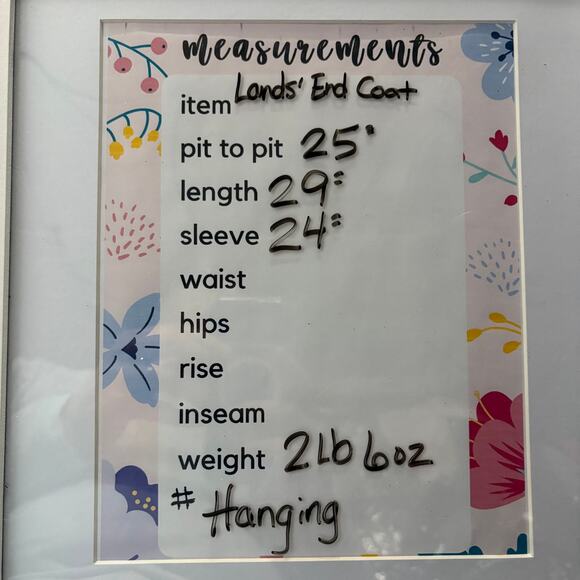 measurements
item Lands' End Coat
pit to pit 25"
length 29"
sleeve 24"
waist
hips
rise
inseam
weight 2 Lb 6oz
# Hanging